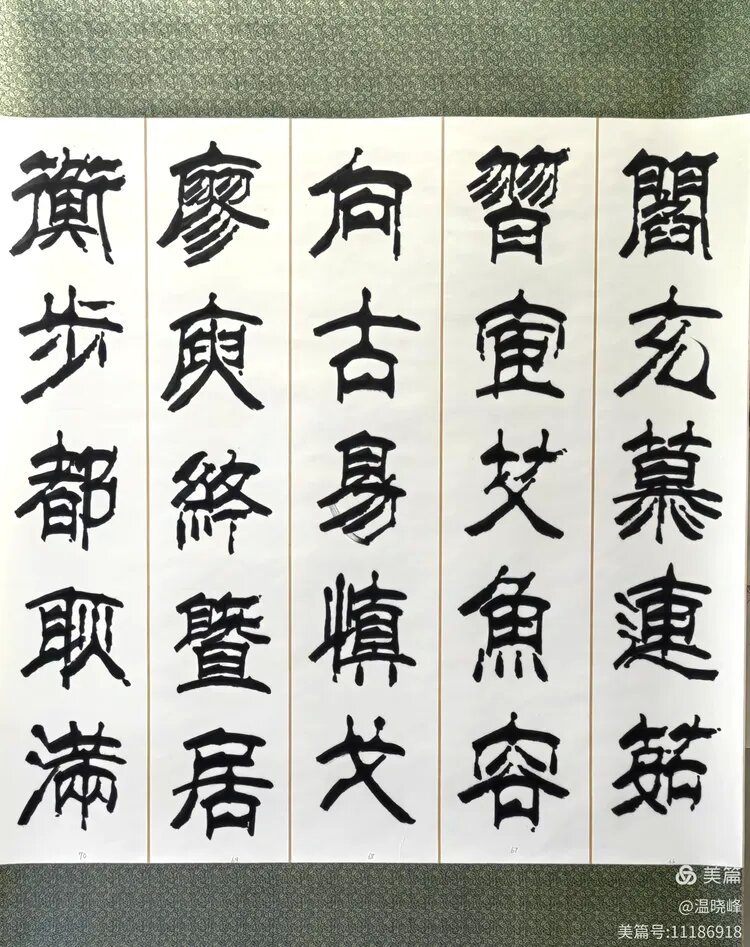 閻充慕連茹
66
習宦艾魚容
67
向古易慎戈
68
廖庾終暨居
69
衡步都耿滿
70
美篇
@温晓峰
美篇号:11186918